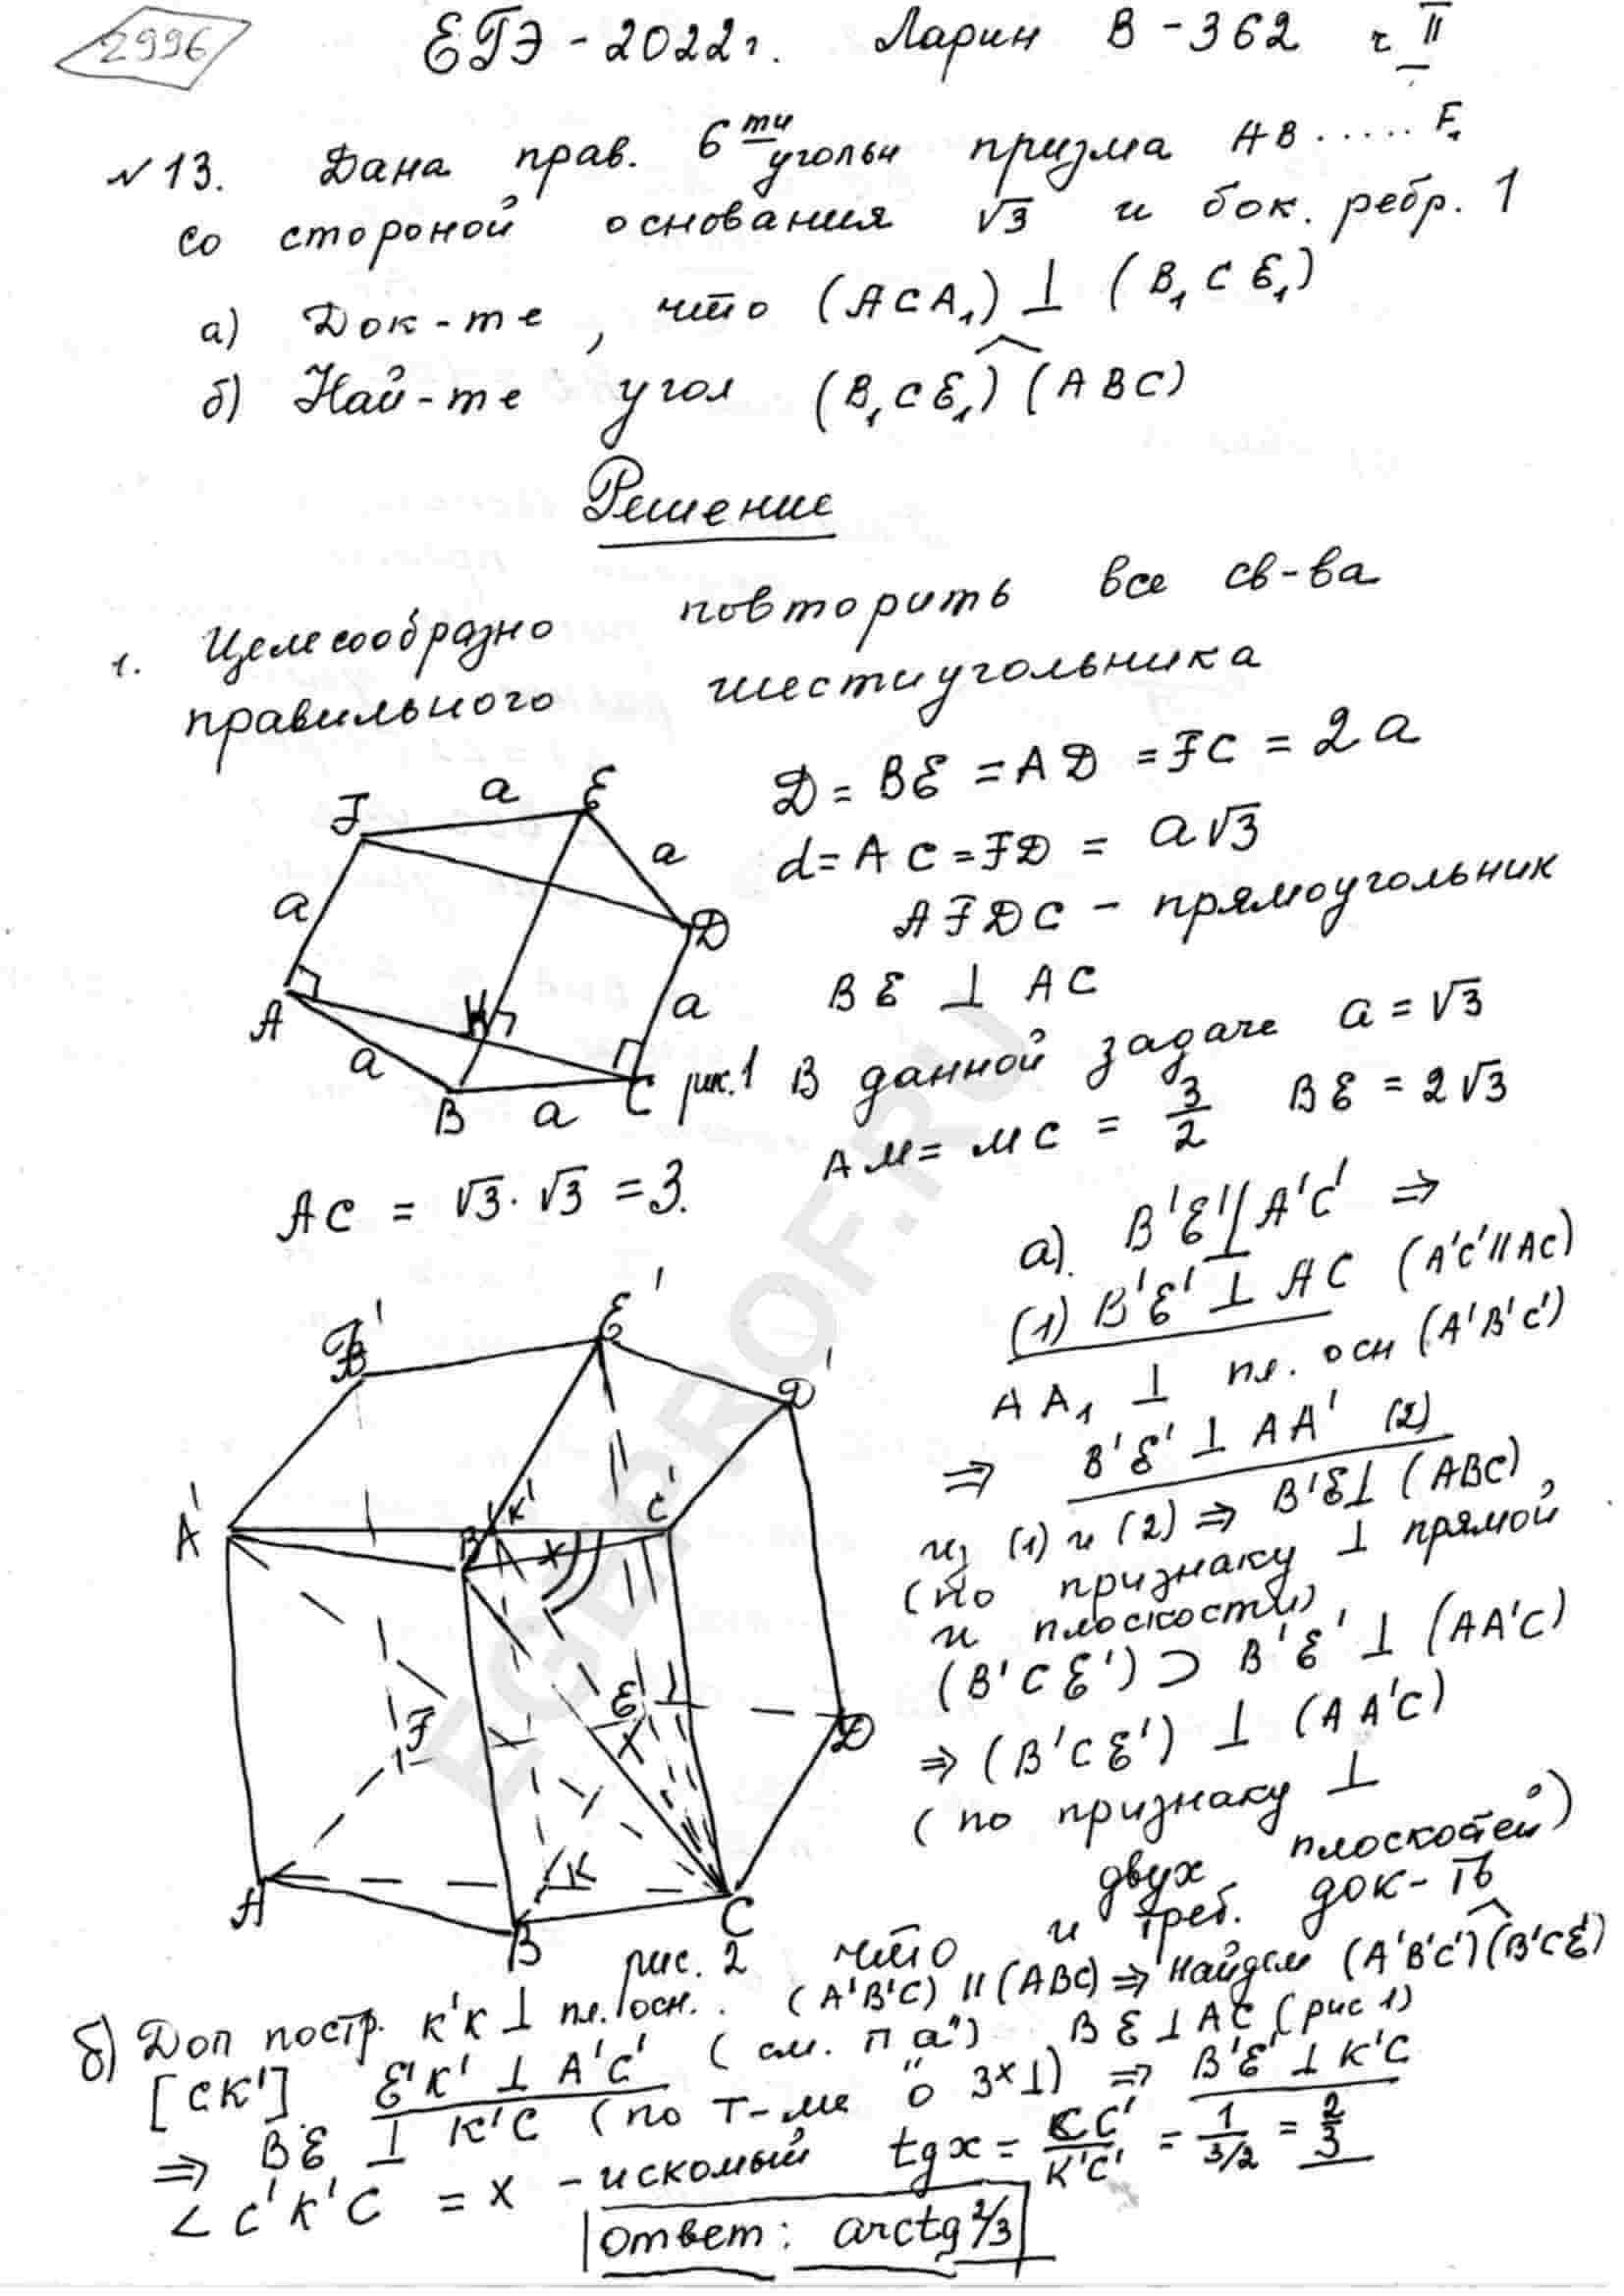 2996
ЕГЭ - 2022г. Ларин В - 362 ч II
№13. Дана прав. 6ти угольн призма AB.....F₁
со стороной основания √3 и бок. ребр. 1
а) Док-те, что (ACA₁) ⊥ (B₁CE₁)
б) Най-те угол (B₁CE₁)^(ABC)
Решение
1. Целесообразно повторить все св-ва
правильного шестиугольника
D = BE = AD = FC = 2a
d = AC = FD = a√3
AFDC - прямоугольник
BE ⊥ AC
F a E
a a
D
A K a
a B a C рис.1
В данной задаче a = √3
AM = MC = 3/2 BE = 2√3
AC = √3 · √3 = 3.
а). B'E' ⊥ A'C' ⇒
(1) B'E' ⊥ AC (A'C' || AC)
AA₁ ⊥ пл. осн (A'B'C')
⇒ B'E' ⊥ AA' (2)
из (1) и (2) ⇒ B'E ⊥ (ABC)
(по признаку ⊥ прямой
и плоскости)
(B'CE') ⊃ B'E' ⊥ (AA'C)
⇒ (B'CE') ⊥ (AA'C)
(по признаку ⊥
двух плоскостей)
что и треб. док-ть
E'
D'
A' K' C'
B x
F E x D
A K
B C
рис. 2
б) Доп постр. K'K ⊥ пл. осн. (A'B'C) || (ABC) ⇒ найдем (A'B'C')^(B'CE')
[CK'] E'K' ⊥ A'C' (см. п "а") BE ⊥ AC (рис 1)
⇒ BE ⊥ K'C (по т-ме о 3х⊥) ⇒ B'E' ⊥ K'C
∠C'K'C = x - искомый tgx = CC'/K'C' = 1/3/2 = 2/3
ответ: arctg 2/3
EGEPROF.RU